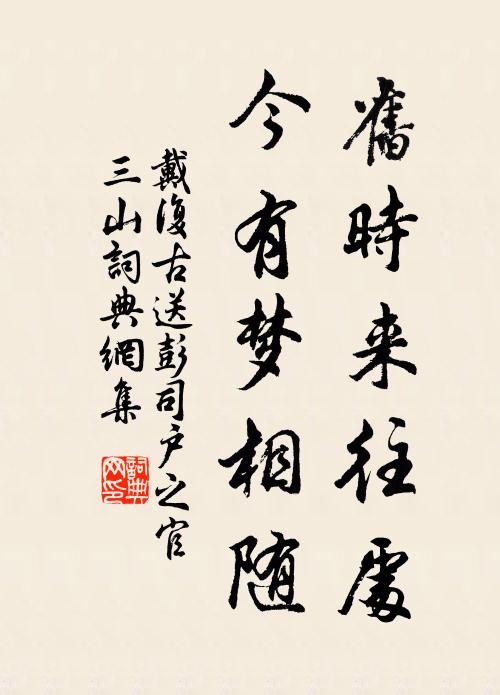 舊時来往處
今有梦相随
戴復古送彭司户之官
三山詞典網集
詞典
网印